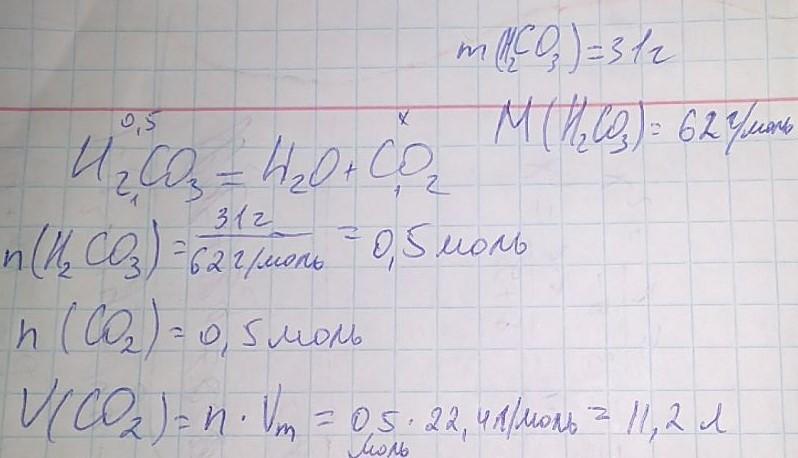 m(H₂CO₃)=31г
M(H₂CO₃)= 62 г/моль
0,5 x
H₂CO₃ = H₂O + CO₂
1 1
n(H₂CO₃) = 31г / 62 г/моль = 0,5 моль
n(CO₂) = 0,5 моль
V(CO₂) = n · Vm = 0 5 · 22,4 л/моль = 11,2 л
моль